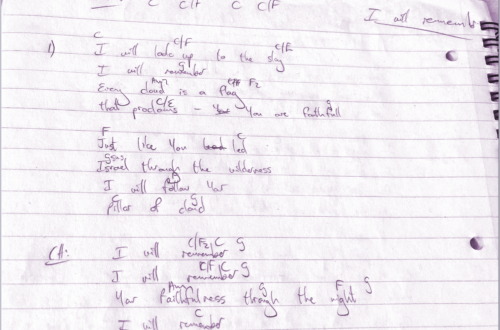 C C/F C C/F
I will remember
1)
C C/F C/E
I will look up to the sky
G
I will remember
Am7 C/E F2
Every cloud is a flag
C/E G
that proclaims - You are faithfull
F C
Just like You led
Gsus
Israel through the wilderness
F
I will follow Your
C G
pillar of cloud
CH:
C/F2 C G
I will remember
C/F C G
I will remember
Am7 G F G
Your faithfulness through the night
C
I will remember